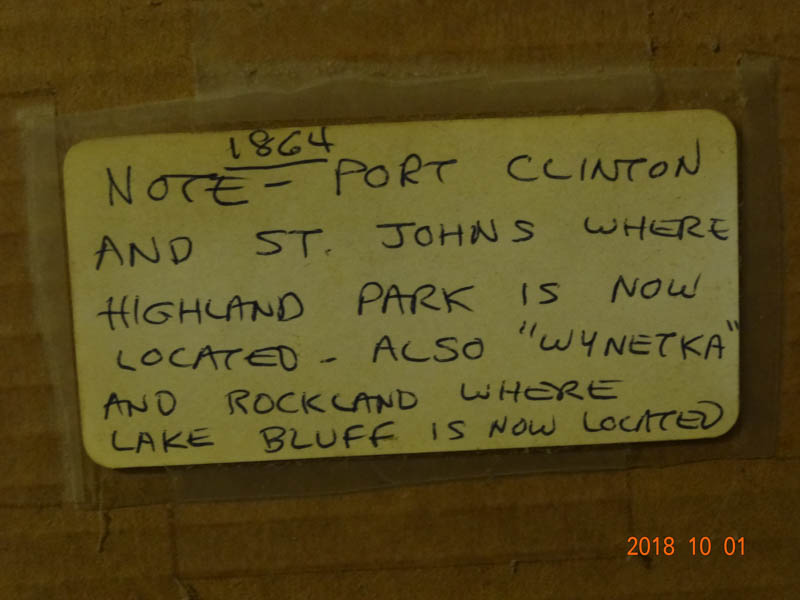 1864
NOTE - PORT CLINTON
AND ST. JOHNS WHERE
HIGHLAND PARK IS NOW
LOCATED - ALSO "WYNETKA"
AND ROCKLAND WHERE
LAKE BLUFF IS NOW LOCATED
2018 10 01